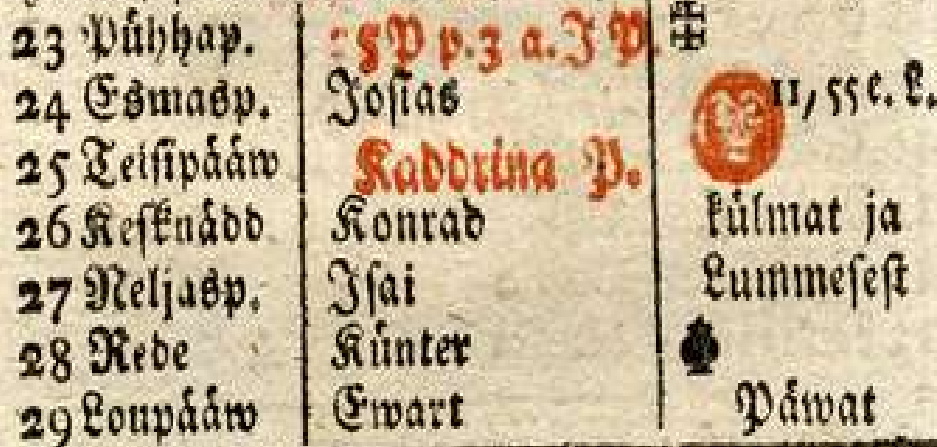 23 Pühhap. 25 P p. 3 a. J P.
24 Esmasp. Josias 11, 55 e. L.
25 Teisipääw Kaddrina P.
26 Kesknädd Konrad külmat ja
27 Neljasp. Isai Lummesest
28 Rede Künter
29 Loupääw Ewart Päwat